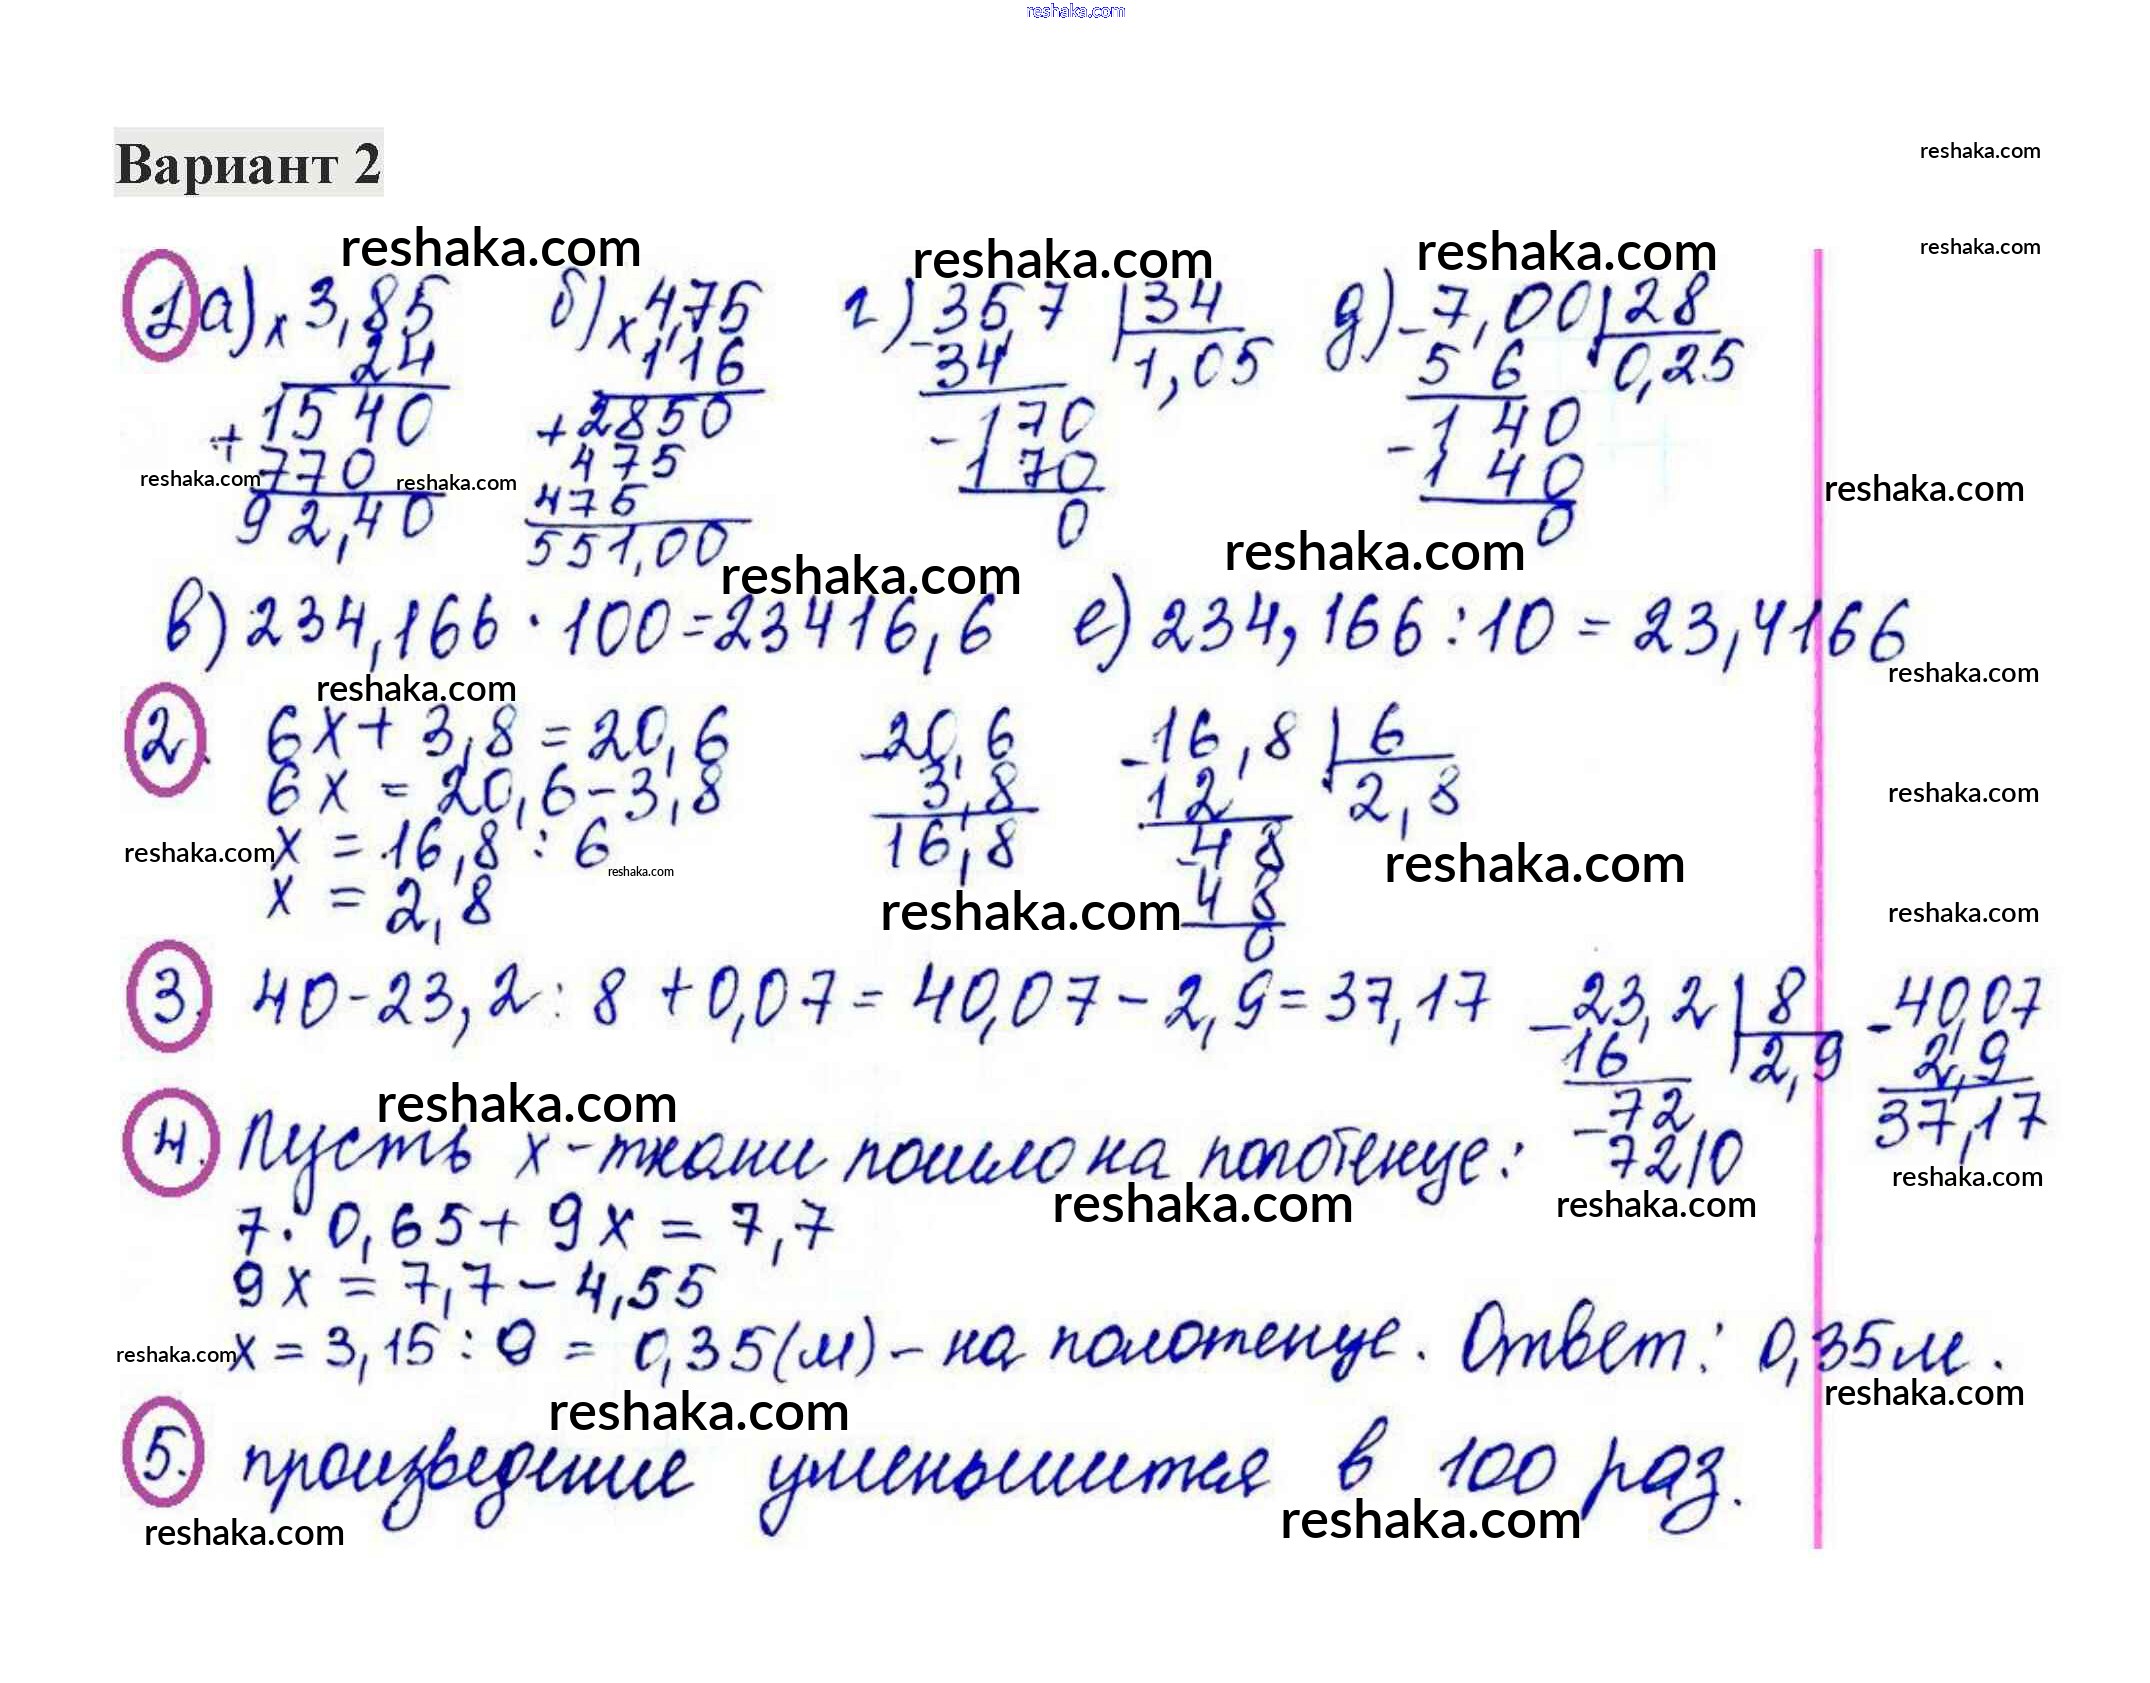 reshaka.com
Вариант 2
reshaka.com
reshaka.com reshaka.com reshaka.com reshaka.com
1 а) × 3,85 б) × 4,75 г) - 35,7 | 34 д) - 7,00 | 28
24 116 34 1,05 5 6 0,25
1540 + 2850 - 170 - 1 40
+ 770 475 170 1 40
reshaka.com reshaka.com reshaka.com
92,40 475 0 0
551,00
reshaka.com reshaka.com
в) 234,166 · 100 = 23416,6 е) 234,166 : 10 = 23,4166
reshaka.com reshaka.com
2. 6х + 3,8 = 20,6 - 20,6 - 16,8 | 6
6х = 20,6 - 3,8 3,8 12 2,8
reshaka.com
х = 16,8 : 6 16,8 - 48
reshaka.com reshaka.com reshaka.com
х = 2,8 48
reshaka.com reshaka.com
0
3. 40 - 23,2 : 8 + 0,07 = 40,07 - 2,9 = 37,17 - 23,2 | 8 - 40,07
16 2,9 2,9
- 72 37,17
reshaka.com
4. Пусть х - ткани пошло на полотенце: 72 | 0
reshaka.com reshaka.com reshaka.com
7 · 0,65 + 9х = 7,7
9х = 7,7 - 4,55
reshaka.com х = 3,15 : 9 = 0,35 (м) - на полотенце. Ответ: 0,35 м.
reshaka.com reshaka.com
5. произведение уменьшится в 100 раз.
reshaka.com reshaka.com